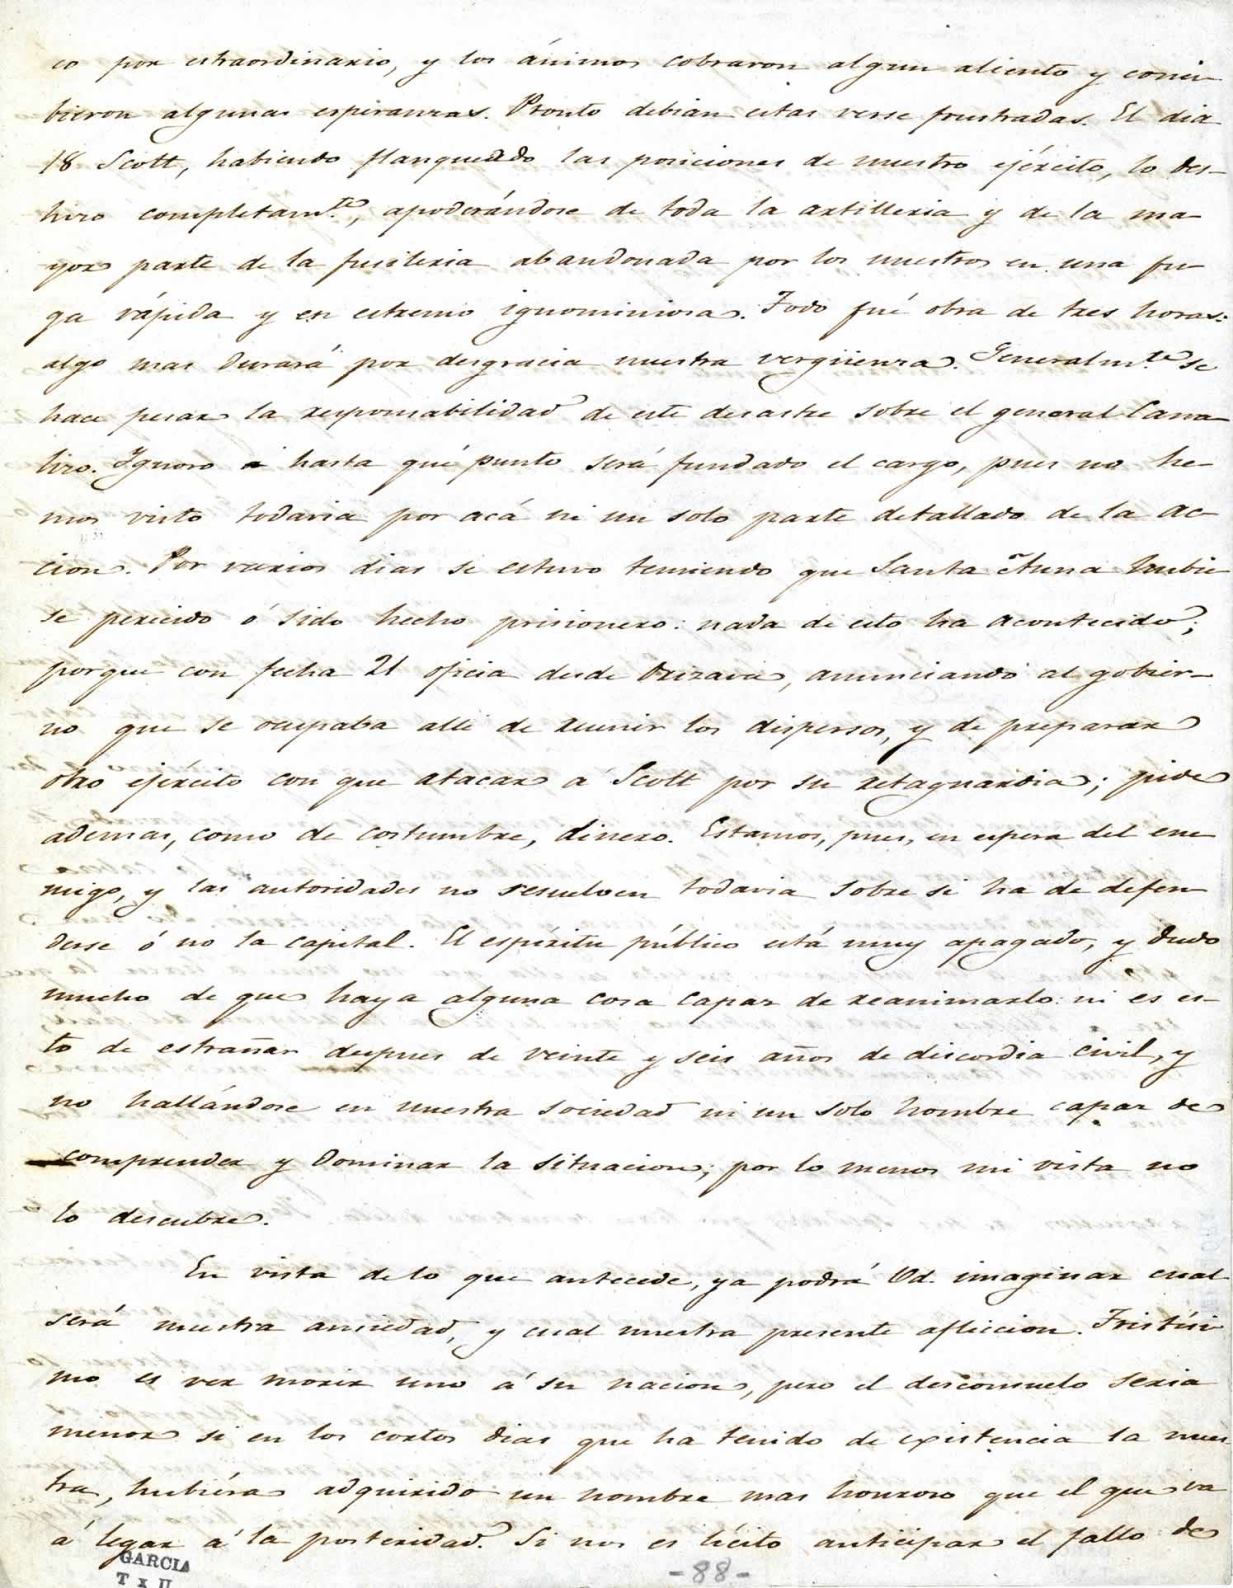 co por estraordinario, y los ánimos cobraron algun aliento y conci-
bieron algunas esperanzas. Pronto debian estas verse frustradas. El dia
18 Scott, habiendo flanqueado las posiciones de nuestro ejército, lo des-
hizo completam.te, apoderándose de toda la artilleria y de la ma-
yor parte de la fusileria abandonada por los nuestros en una fu-
ga rápida y en estremo ignominiosa. Todo fué obra de tres horas:
algo mas durará por desgracia nuestra vergüenza. Generalm.te se
hace pesar la responsabilidad de este desastre sobre el general Cana-
lizo. Ignoro hasta qué punto será fundado el cargo, pues no he-
mos visto todavia por acá ni un solo parte detallado de la ac-
cion. Por varios dias se estuvo temiendo que Santa Anna hubie
se perecido ó sido hecho prisionero: nada de esto ha acontecido;
porque con fecha 21 oficia desde Orizava, anunciando al gobier-
no que se ocupaba alli de reunir los dispersos, y de preparar
otro ejército con que atacar á Scott por su retaguardia; pide
ademas, como de costumbre, dinero. Estamos, pues, en espera del ene
migo, y las autoridades no resuelven todavia sobre si ha de defen
derse ó no la capital. El espíritu público está muy apagado, y dudo
mucho de que haya alguna cosa capaz de reanimarlo: ni es es-
to de estrañar despues de veinte y seis años de discordia civil, y
no hallándose en nuestra sociedad ni un solo hombre capaz de
comprender y dominar la situacion; por lo menos mi vista no
lo descubre.
En vista de lo que antecede, ya podrá Vd. imaginar cual
será nuestra ansiedad, y cual nuestra presente afliccion. Tristísi
mo es ver morir uno á su nacion, pero el desconsuelo seria
menor si en los cortos dias que ha tenido de existencia la nues
tra, hubiéra adquirido un nombre mas honroso que el que va
á legar á la posteridad. Si nos es lícito anticipar el fallo de
GARCIA
-88-